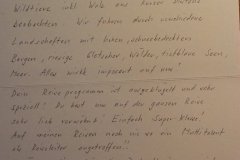 Wildtiere inkl Wale aus kurzer Distanz
beobachten. Wir fuhren durch verschiedene
Landschaften mit hohen, schneebedeckten
Bergen, riesige Gletscher, Wälder, tiefblaue Seen,
Meer. Alles wirkt imposant auf uns!
Dein Reiseprogramm ist ausgeklügelt und sehr
speziell! Du hast uns auf der ganzen Reise
sehr lieb verwöhnt! Einfach Super-Klasse!
Auf meinen Reisen noch nie so ein Multitalent
als Reiseleiter angetroffen!!